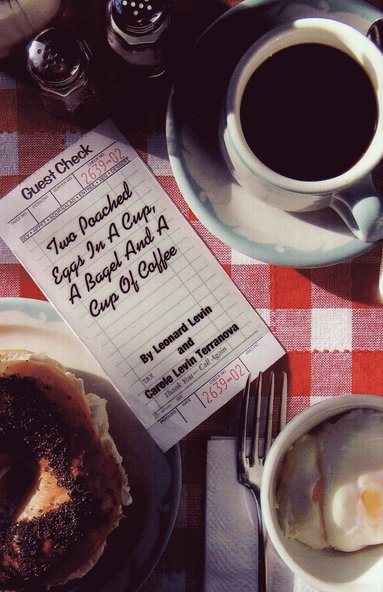 Guest Check
2639-02
Two Poached
Eggs In A Cup,
A Bagel And A
Cup Of Coffee
By Leonard Levin
and
Carole Levin Terranova
TAX
Thank You - Call Again
2639-02
DATE